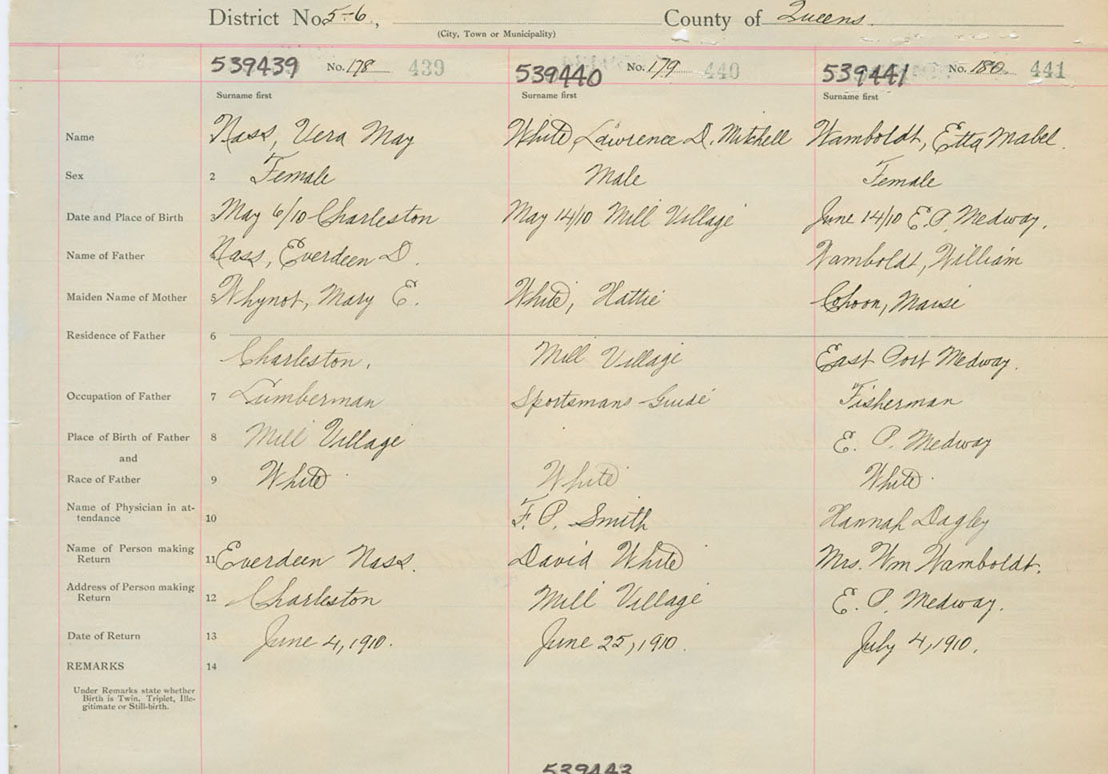 District No. 5-6, County of Queens.
(City, Town or Municipality)
539439 No. 178 439 539440 No. 179 440 539441 No. 180 441
Surname first Surname first Surname first
Name Nass, Vera May White, Lawrence D. Mitchell Wamboldt, Etta Mabel.
Sex 2 Female Male Female
Date and Place of Birth May 6/10 Charleston May 14/10 Mill Village June 14/10 E. P. Medway.
Name of Father Nass, Everdeen D. Wamboldt, William
Maiden Name of Mother 5 Whynot, Mary E. White, Hattie Cohoon, Maisie
Residence of Father 6
Charleston. Mill Village East Port Medway.
Occupation of Father 7 Lumberman Sportsmans Guide Fisherman
Place of Birth of Father 8 Mill Village E. P. Medway
and
Race of Father 9 White White White
Name of Physician in at-
tendance 10 F. P. Smith Hannah Dagley
Name of Person making
Return 11 Everdeen Nass. David White Mrs. Wm Wamboldt.
Address of Person making
Return 12 Charleston Mill Village E. P. Medway.
Date of Return 13 June 4, 1910. June 25, 1910. July 4, 1910.
REMARKS 14
Under Remarks state whether
Birth is Twin, Triplet, Ille-
gitimate or Still-birth.
539443